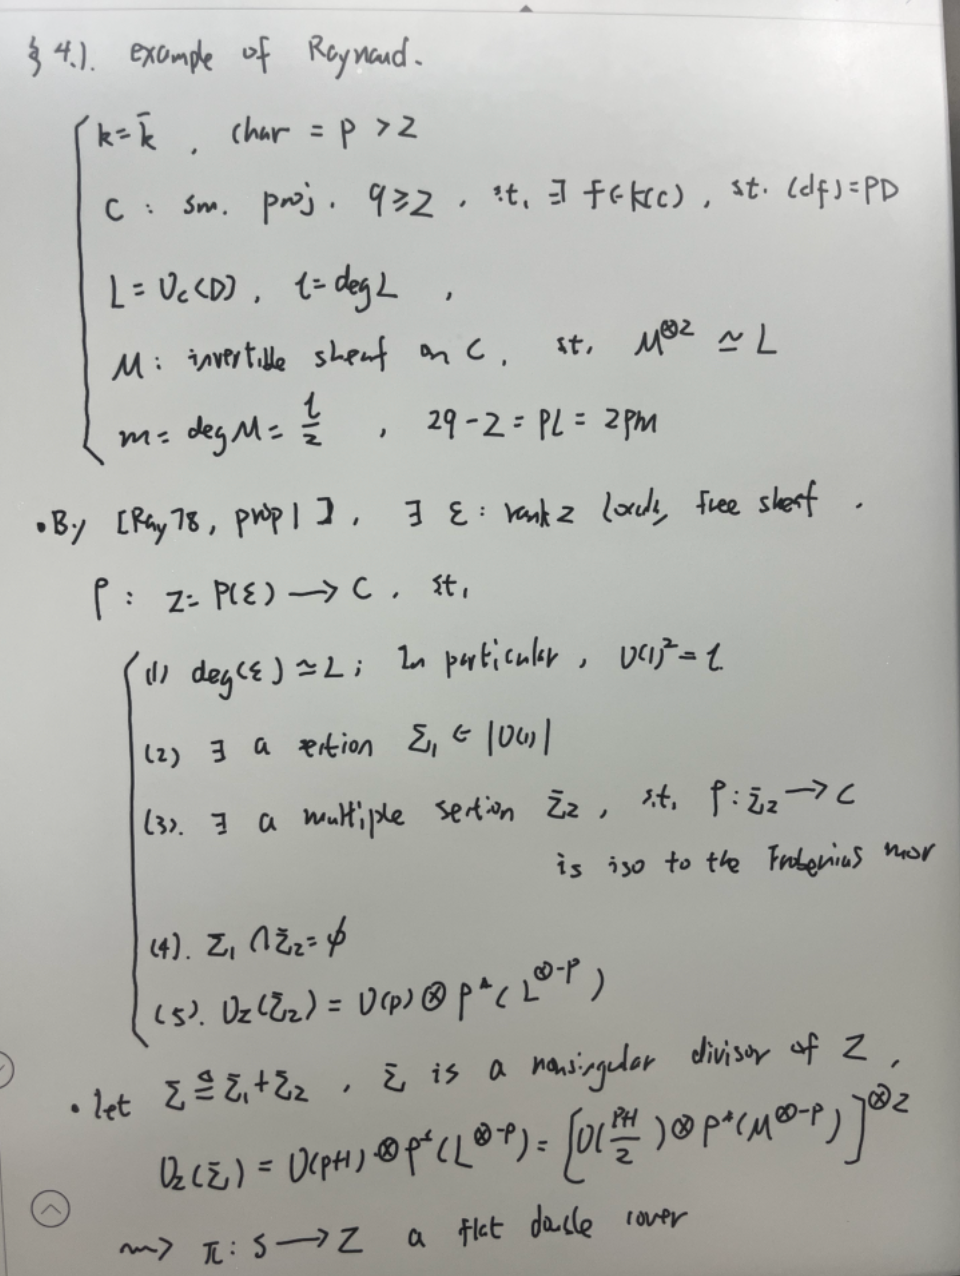 § 4.1. example of Raynaud.
k = k̄, char = p > 2
C : sm. proj. q ≥ 2, st. ∃ f ∈ k(C), st. (df) = PD
L = O_C(D), l = deg L,
M : invertible sheaf on C, st. M^{⊗2} ≃ L
m = deg M = l/2, 2q - 2 = Pl = 2pm
• By [Ray 78, prop 1], ∃ ε : rank 2 locally free sheaf.
P : Z = P(ε) → C. st.
(1) deg(ε) ≃ L; In particular, O(1)² = l
(2) ∃ a section Σ₁ ∈ |O(1)|
(3). ∃ a multiple section Σ₂, s.t. P : Σ₂ → C
is iso to the Frobenius mor
(4). Σ₁ ∩ Σ₂ = ϕ
(5). O_Z(Σ₂) = O(p) ⊗ p*(L^{⊗-p})
• let Σ ≜ Σ₁ + Σ₂, Σ is a nonsingular divisor of Z,
O_Z(Σ) = O(p+1) ⊗ p*(L^{⊗-p}) = [O(p+1/2) ⊗ p*(M^{⊗-p})]^{⊗2}
⇝ π : S → Z a flat double cover